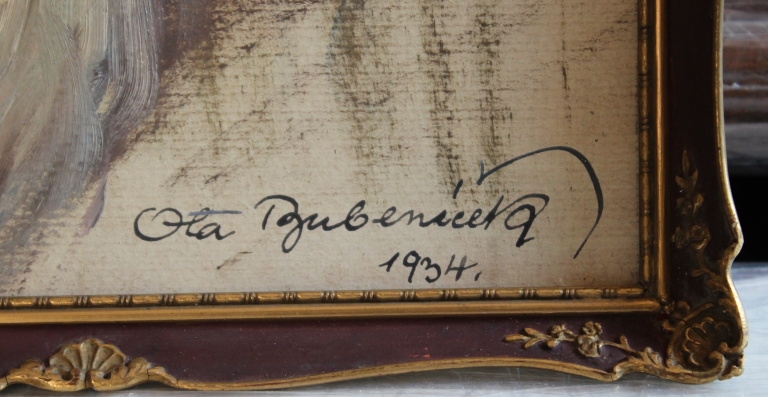 Ota Bubeníček
1934.